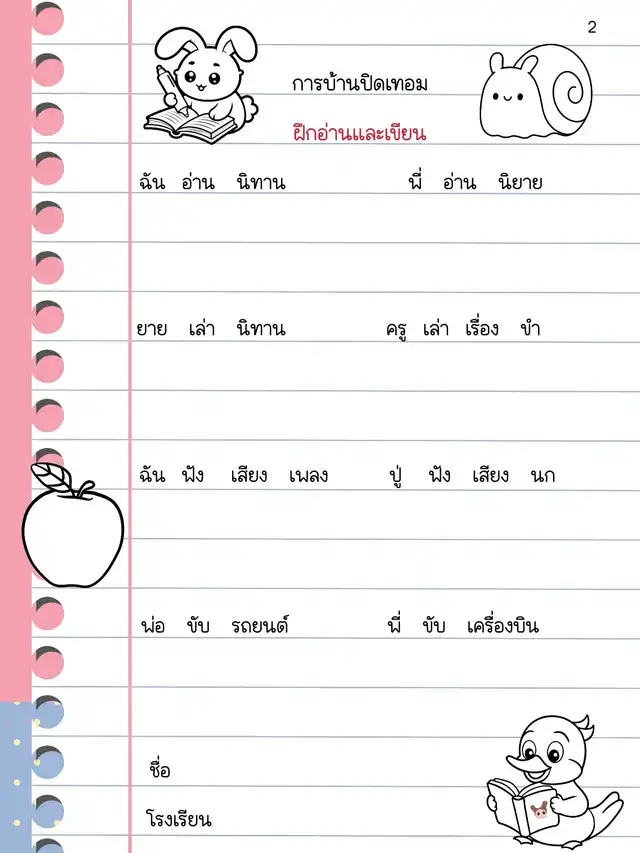 2
การบ้านปิดเทอม
ฝึกอ่านและเขียน
ฉัน อ่าน นิทาน พี่ อ่าน นิยาย
ยาย เล่า นิทาน ครู เล่า เรื่อง ขำ
ฉัน ฟัง เสียง เพลง ปู่ ฟัง เสียง นก
พ่อ ขับ รถยนต์ พี่ ขับ เครื่องบิน
ชื่อ
โรงเรียน